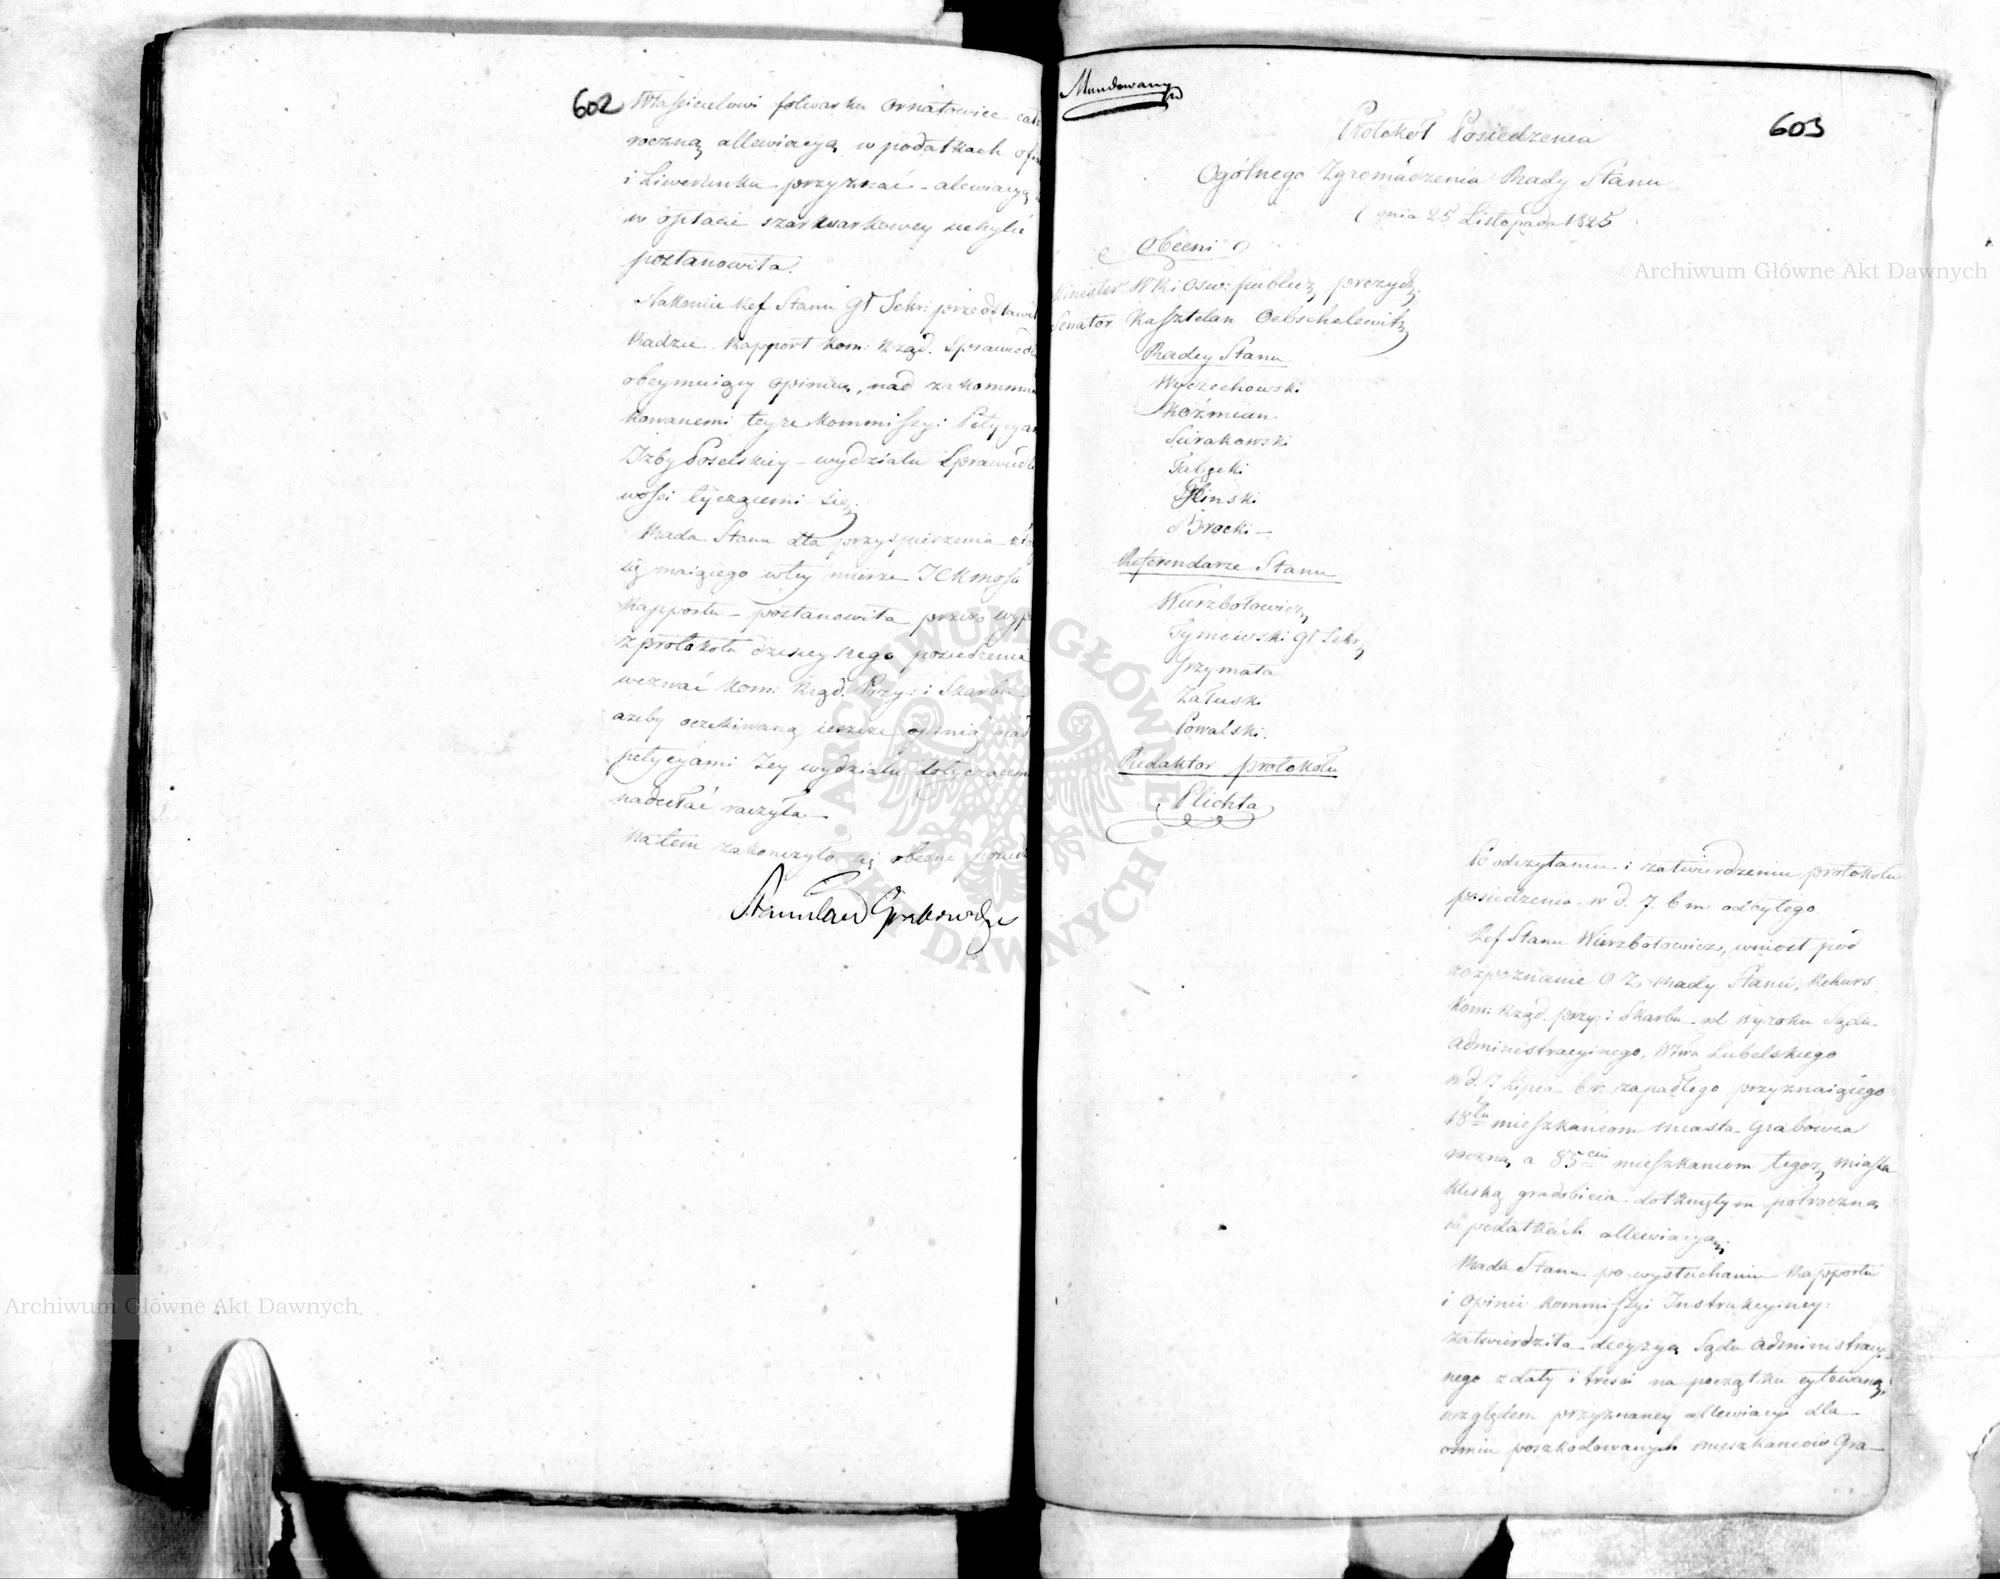 602
Właścicielowi folwarku Ornatowice cało
roczną allewiacyą w podatkach ofia
i Liwerunku przyznać – alewiacyą
w opłacie szarwarkowey uchylić
postanowiła.
Nakoniec Ref Stanu Gł Sekr: przedstawił
Radzie Rapport Kom: Rząd. Sprawiedli
obeymuiący opinią, nad zakommuni
kowanemi teyże Kommissyi Petycyami
Izby Poselskiey – wydziału Sprawiedli
wości tyczącemi się.
Rada Stanu dla przyspieszenia złoż
się maiącego wtey mierze JCKmości
Rapportu – postanowiła przez wyp
z protokołu dzisieyszego posiedzenia
wezwać Kom: Rząd. Przy: i Skarbu
ażeby oczekiwaną ieszcze opinią nad
petycyami Jey wydziału dotyczącemi
nadesłać raczyła –
Na tem zakończyło się obecne posiedz
Stanisław Grabowski
Mundowany
603
Protokół Posiedzenia
Ogólnego Zgromadzenia Rady Stanu
dnia 25 Listopada 1825
Obecni
Minister WR i Ośw: publicz prezyd:
Senator Kasztelan Oebschelewitz
Radcy Stanu
Wyczechowski
Koźmian
Surakowski
Tabęcki
Gliński
Brocki –
Referendarze Stanu
Wierzbołowicz
Tymowski Gł Sekr
Grzymała
Załuski
Powalski.
Redaktor protokołu
Plichta
Po odczytaniu i zatwierdzeniu protokołu
posiedzenia w d. 7 b m odbytego
Ref Stanu Wierzbołowicz, wniosł pod
rozpoznanie O Z Rady Stanu, Rekurs
Kom: Rząd. przy: i Skarbu od Wyroku Sądu
Administracyinego, Wwa Lubelskiego
w d. 7 Lipca b r. zapadłego przyznaiącego
18tu mieszkańcom miasta Grabowca
roczną a 85ciu mieszkańcom tegoż miasta
klęską gradobicia dotkniętym półroczną
w podatkach allewiacyą.
Rada Stanu po wysłuchaniu Rapportu
i opinii Kommissyi Instrukcyiney:
zatwierdziła decyzyą Sądu Administracyi
nego z daty i treści na początku cytowaną,
względem przyznaney allewiacyi dla
osmiu poszkodowanych mieszkańców Gra–
Archiwum Główne Akt Dawnych
Archiwum Główne Akt Dawnych
ARCHIWUM GŁÓWNE AKT DAWNYCH